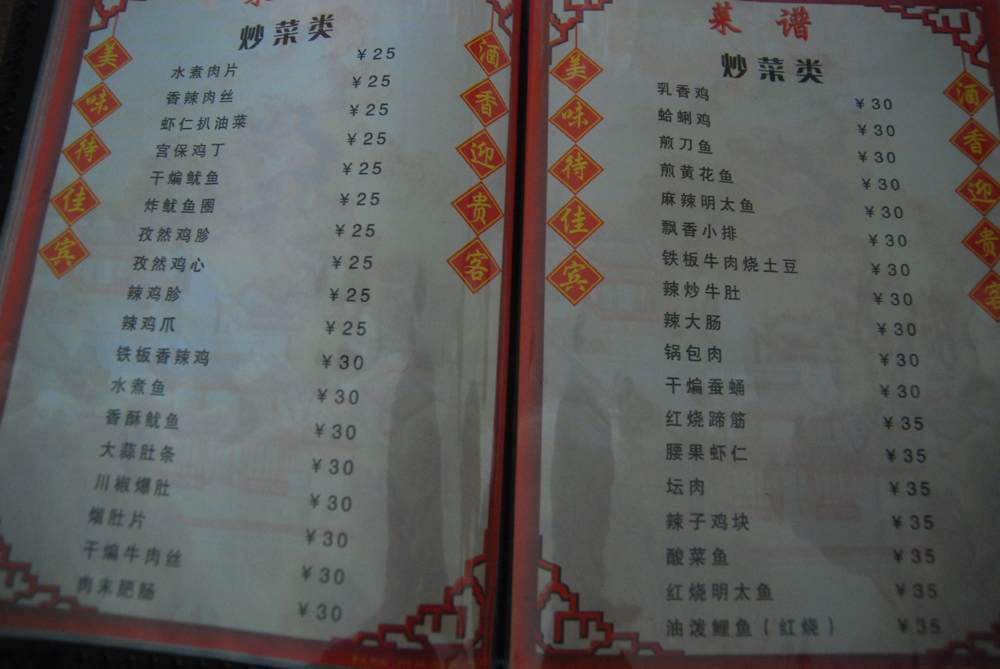 炒菜类
水煮肉片 ¥25
香辣肉丝 ¥25
虾仁扒油菜 ¥25
宫保鸡丁 ¥25
干煸鱿鱼 ¥25
炸鱿鱼圈 ¥25
孜然鸡胗 ¥25
孜然鸡心 ¥25
辣鸡胗 ¥25
辣鸡爪 ¥25
铁板香辣鸡 ¥30
水煮鱼 ¥30
香酥鱿鱼 ¥30
大蒜肚条 ¥30
川椒爆肚 ¥30
熘肚片 ¥30
干煸牛肉丝 ¥30
肉末肥肠 ¥30
美味待佳宾
酒香迎贵客
菜谱
炒菜类
乳香鸡 ¥30
蛤蜊鸡 ¥30
煎刀鱼 ¥30
煎黄花鱼 ¥30
麻辣明太鱼 ¥30
飘香小排 ¥30
铁板牛肉烧土豆 ¥30
辣炒牛肚 ¥30
辣大肠 ¥30
锅包肉 ¥30
干煸蚕蛹 ¥30
红烧蹄筋 ¥35
腰果虾仁 ¥35
坛肉 ¥35
辣子鸡块 ¥35
酸菜鱼 ¥35
红烧明太鱼 ¥35
油泼鲤鱼(红烧) ¥35
美味待佳宾
酒香迎贵客